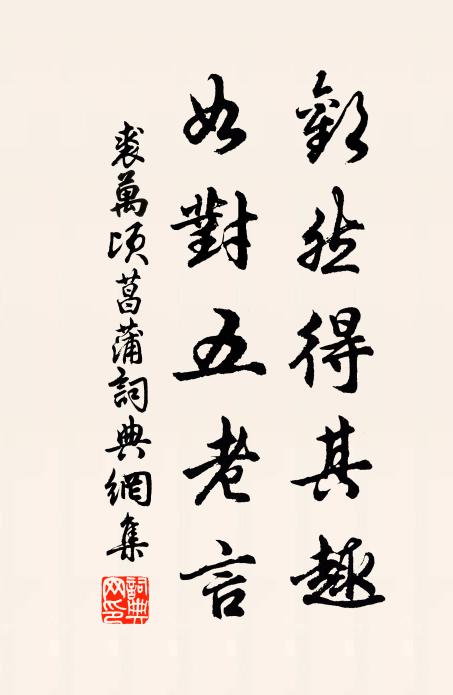 歡然得其趣
如對五老言
裘萬頃菖蒲詞典網集
詞典
网印